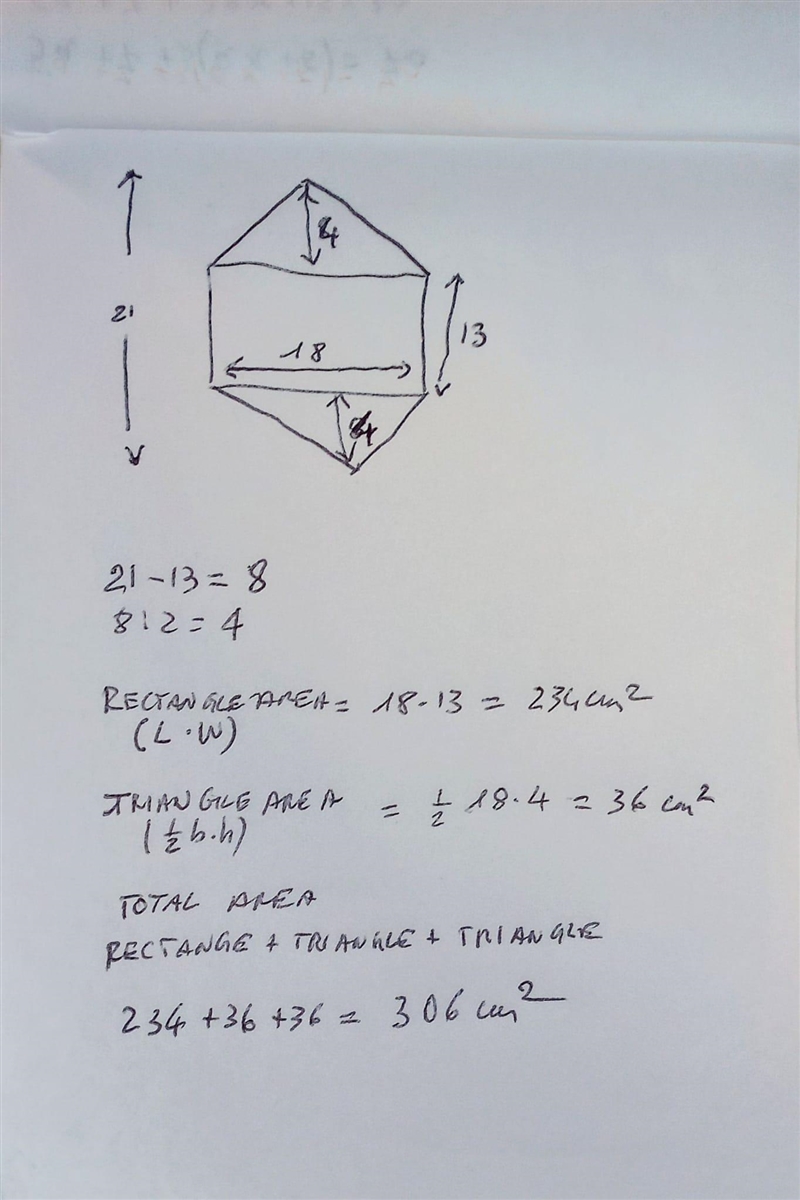 21
4
13
18
4
21 - 13 = 8
8 : 2 = 4
RECTANGLE AREA = 18 · 13 = 234 cm²
(L · W)
TRIANGLE AREA = ½ 18 · 4 = 36 cm²
(½ b · h)
TOTAL AREA
RECTANGE + TRIANGLE + TRIANGLE
234 + 36 + 36 = 306 cm²